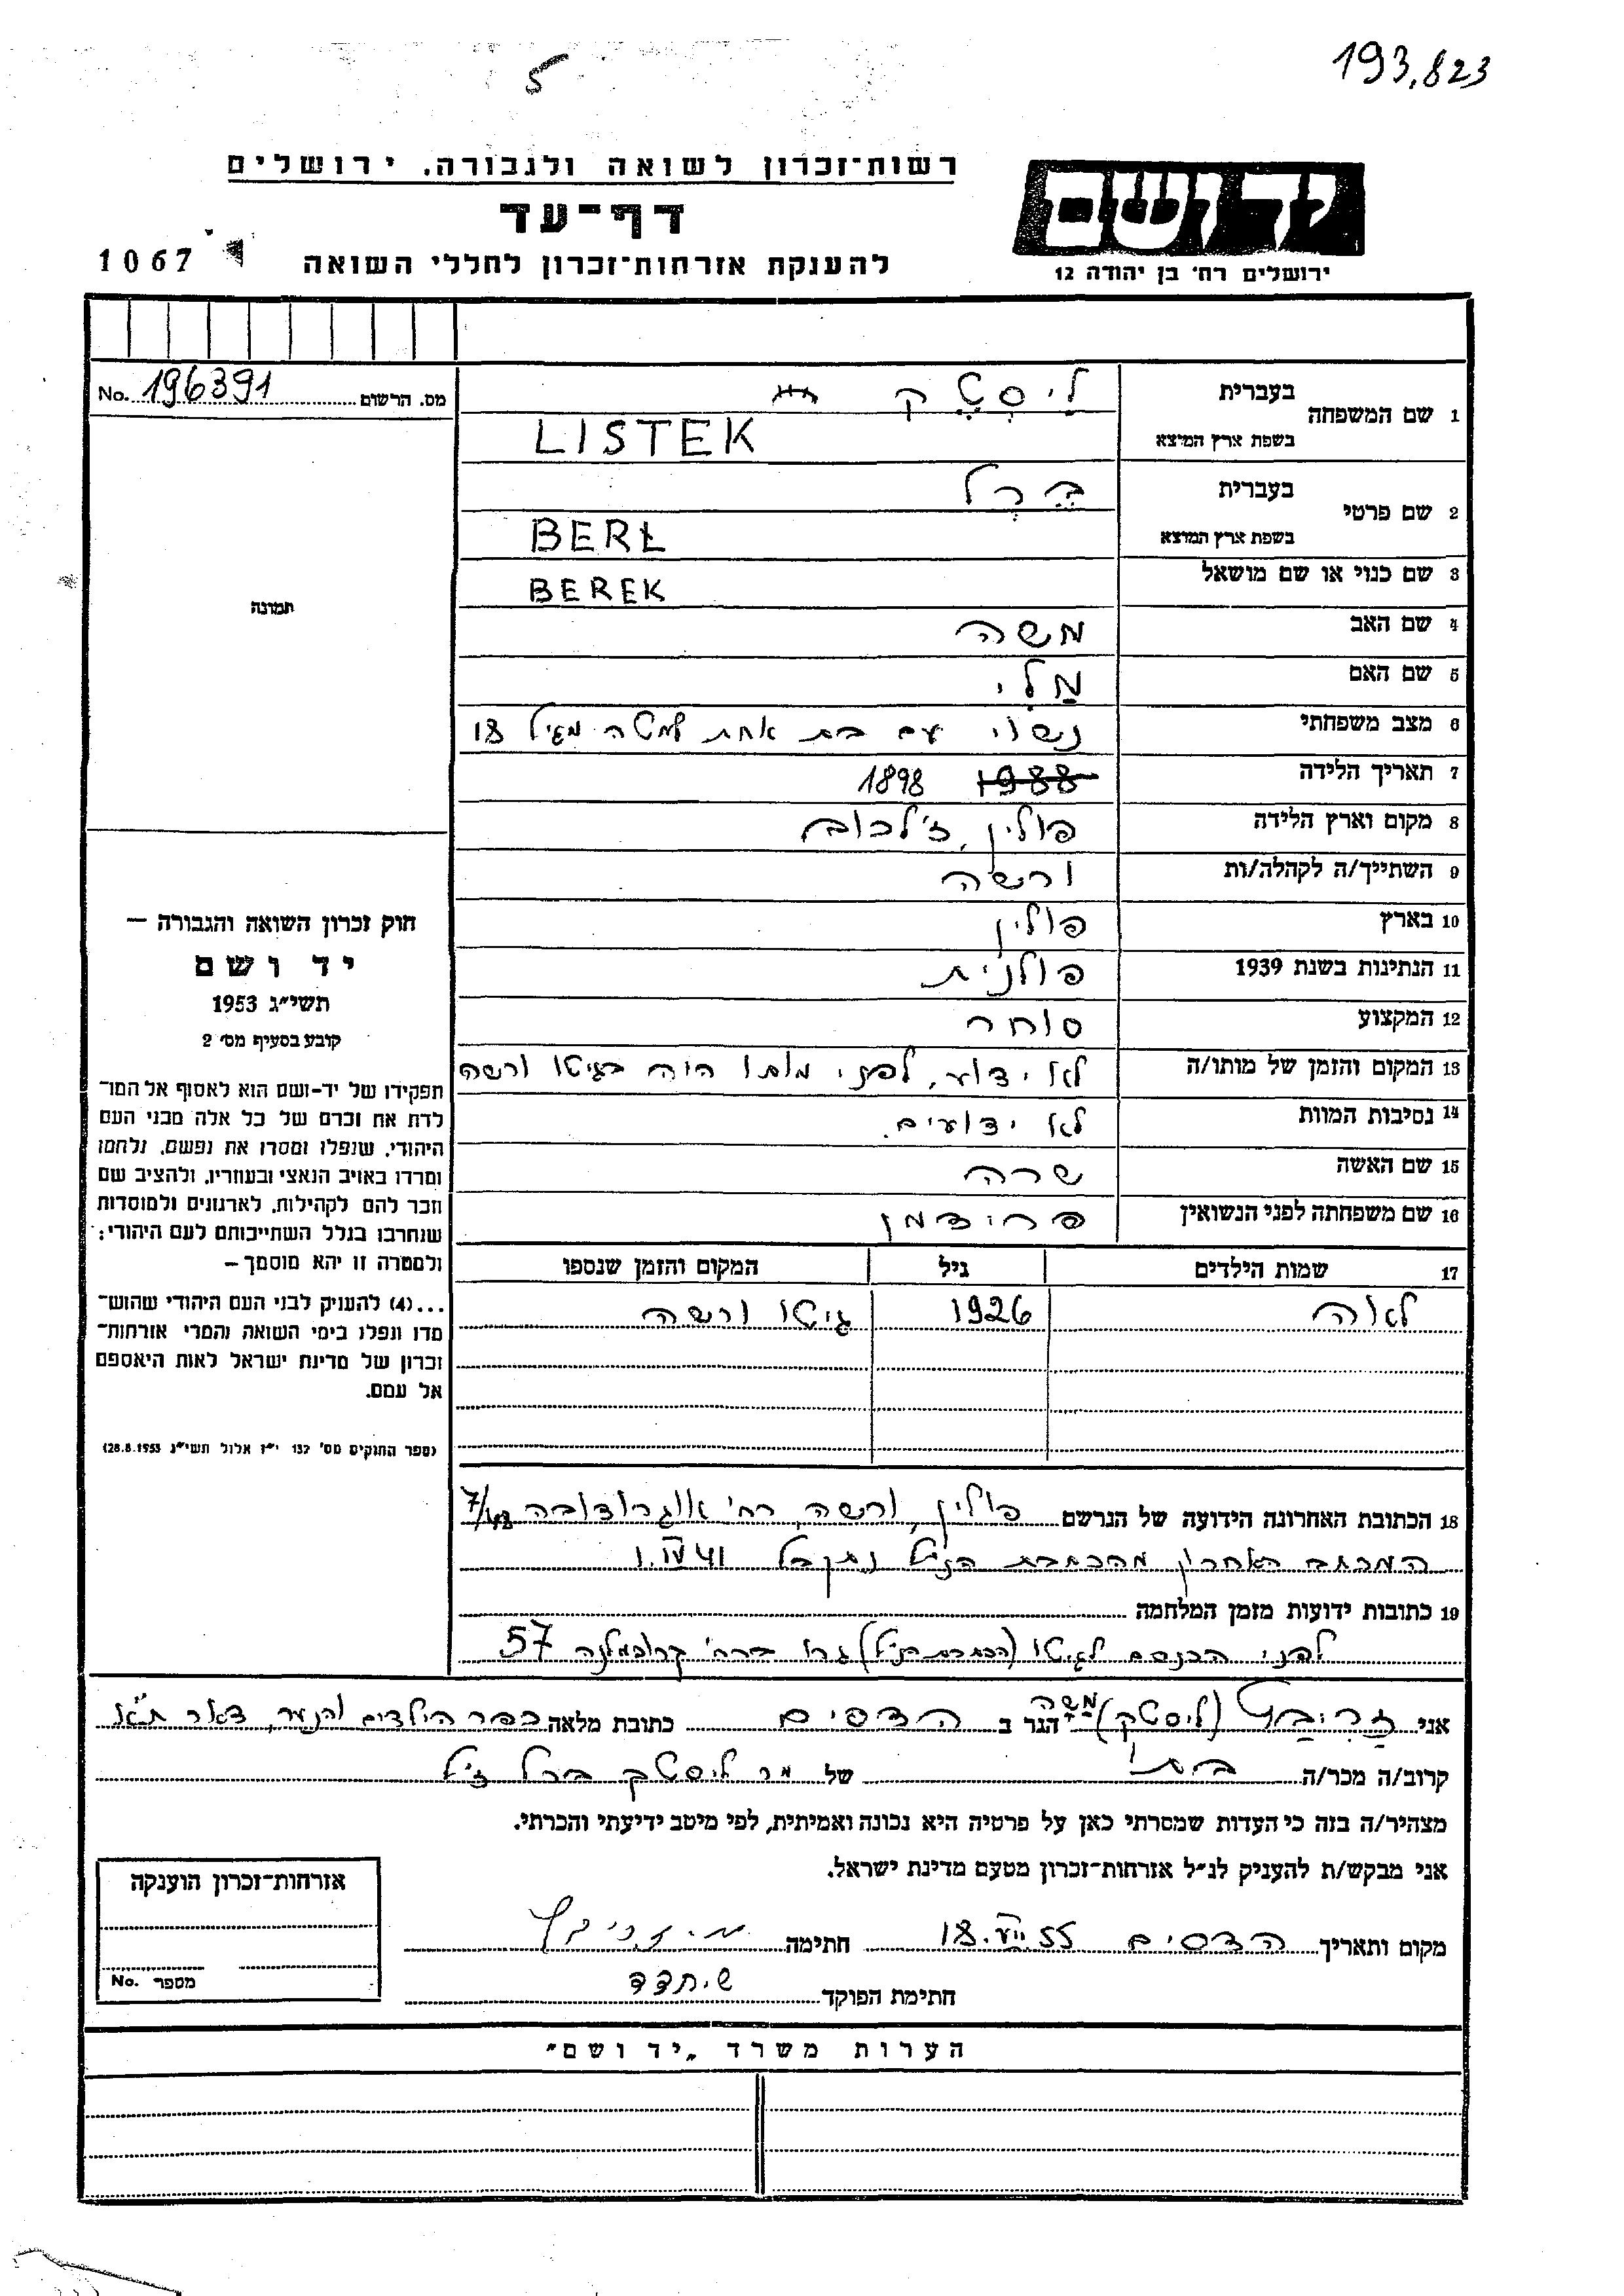 5
193,823
רשות־זכרון לשואה ולגבורה. ירושלים
דף־עד
להענקת אזרחות־זכרון לחללי השואה
1067
יד ושם
ירושלים רח׳ בן יהודה 12
מס. הרשום 196391 No.
תמונה
1 שם המשפחה בעברית לִיסְטֶק
בשפת ארץ המוצא LISTEK
2 שם פרטי בעברית בֶּרְל
בשפת ארץ המוצא BERŁ
3 שם כנוי או שם מושאל BEREK
4 שם האב משה
5 שם האם מַלִי
6 מצב משפחתי נשוי עם בת אחת למטה מגיל 18
7 תאריך הלידה 1988 1898
8 מקום וארץ הלידה פולין, ז'לכוב
9 השתייך/ה לקהלה/ות ורשה
10 בארץ פולין
11 הנתינות בשנת 1939 פולנית
12 המקצוע סוחר
13 המקום והזמן של מותו/ה לא ידוע, לפני מותו היה בגיטו ורשה
14 נסיבות המוות לא ידועים.
15 שם האשה שרה
16 שם משפחתה לפני הנשואין פרידמן
17 שמות הילדים גיל המקום והזמן שנספו
לאה 1926 גיטו ורשה
חוק זכרון השואה והגבורה —
יד ושם
תשי״ג 1953
קובע בסעיף מס׳ 2
תפקידו של יד־ושם הוא לאסוף אל המו־
לדת את זכרם של כל אלה מבני העם
היהודי, שנפלו ומסרו את נפשם, נלחמו
ומרדו באויב הנאצי ובעוזריו, ולהציב שם
וזכר להם לקהילות, לארגונים ולמוסדות
שנחרבו בגלל השתייכותם לעם היהודי;
ולמטרה זו יהא מוסמך —
...(4) להעניק לבני העם היהודי שהוש־
מדו ונפלו בימי השואה והמרי אזרחות־
זכרון של מדינת ישראל לאות היאספם
אל עמם.
(ספר החוקים מס׳ 132 י״ז אלול תשי״ג 28.8.1953)
18 הכתובת האחרונה הידועה של הנרשם פולין, ורשה, רח' אוגרודובה
המכתב האחרון מהכתבת הנ״ל נתקבל 1.IV 41
19 כתובות ידועות מזמן המלחמה
לפני הכנסם לגיטו (הכתבת הנ״ל) גרו ברח' קרוכמלנה 57
אני (ליסטק) משה הגר ב הדסים כתובת מלאה כפר הילדים והנוער, דאר ת״א
קרוב/ה מכר/ה של מר ליסטק ברל ז״ל
מצהיר/ה בזה כי העדות שמסרתי כאן על פרטיה היא נכונה ואמיתית, לפי מיטב ידיעתי והכרתי.
אני מבקש/ת להעניק לנ״ל אזרחות־זכרון מטעם מדינת ישראל.
מקום ותאריך הדסים 18.VII.55 חתימה
חתימת הפוקד
אזרחות־זכרון הוענקה
מספר No.
הערות משרד „יד ושם״